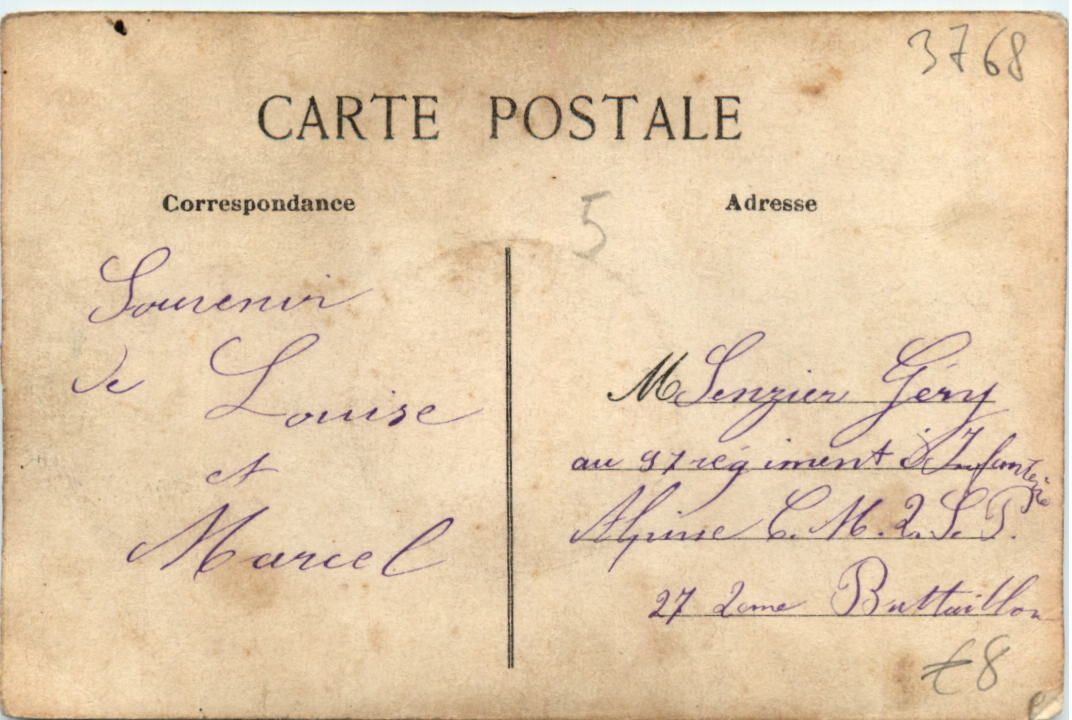 3768
CARTE POSTALE
Correspondance
Adresse
5
Souvenir
de Louise
et
Marcel
M Senzier Géry
au 97 régiment d'Infanterie
Alpine C. M. 2. S. P.
27 2eme Battaillon
€8